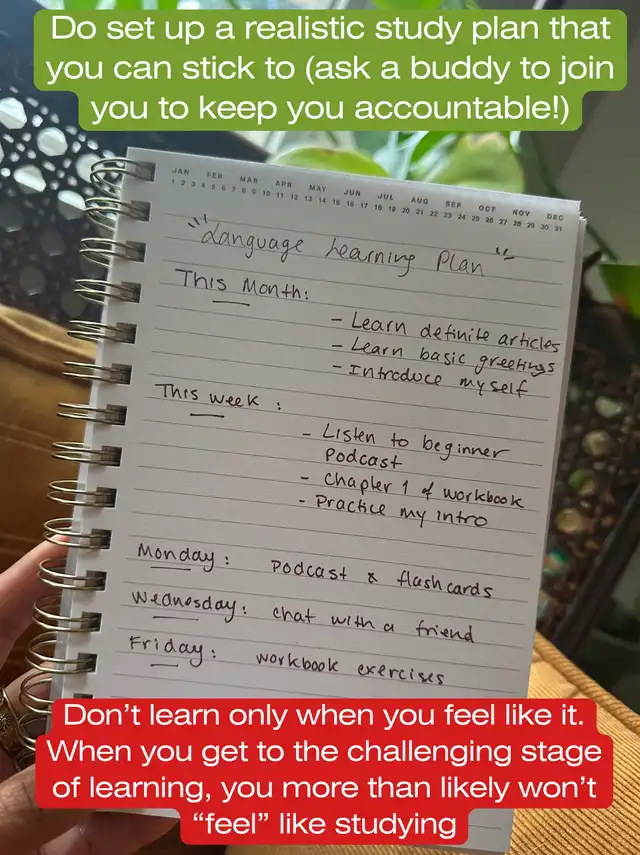 Do set up a realistic study plan that
you can stick to (ask a buddy to join
you to keep you accountable!)
JAN FEB MAR APR MAY JUN JUL AUG SEP OCT NOV DEC
1 2 3 4 5 6 7 8 9 10 11 12 13 14 15 16 17 18 19 20 21 22 23 24 25 26 27 28 29 30 31
Language Learning Plan
This Month:
- Learn definite articles
- Learn basic greetings
- Introduce myself
This week :
- Listen to beginner
Podcast
- Chapter 1 of workbook
- Practice my intro
Monday: Podcast & flashcards
Wednesday: chat with a friend
Friday: workbook exercises
Don’t learn only when you feel like it.
When you get to the challenging stage
of learning, you more than likely won’t
“feel” like studying